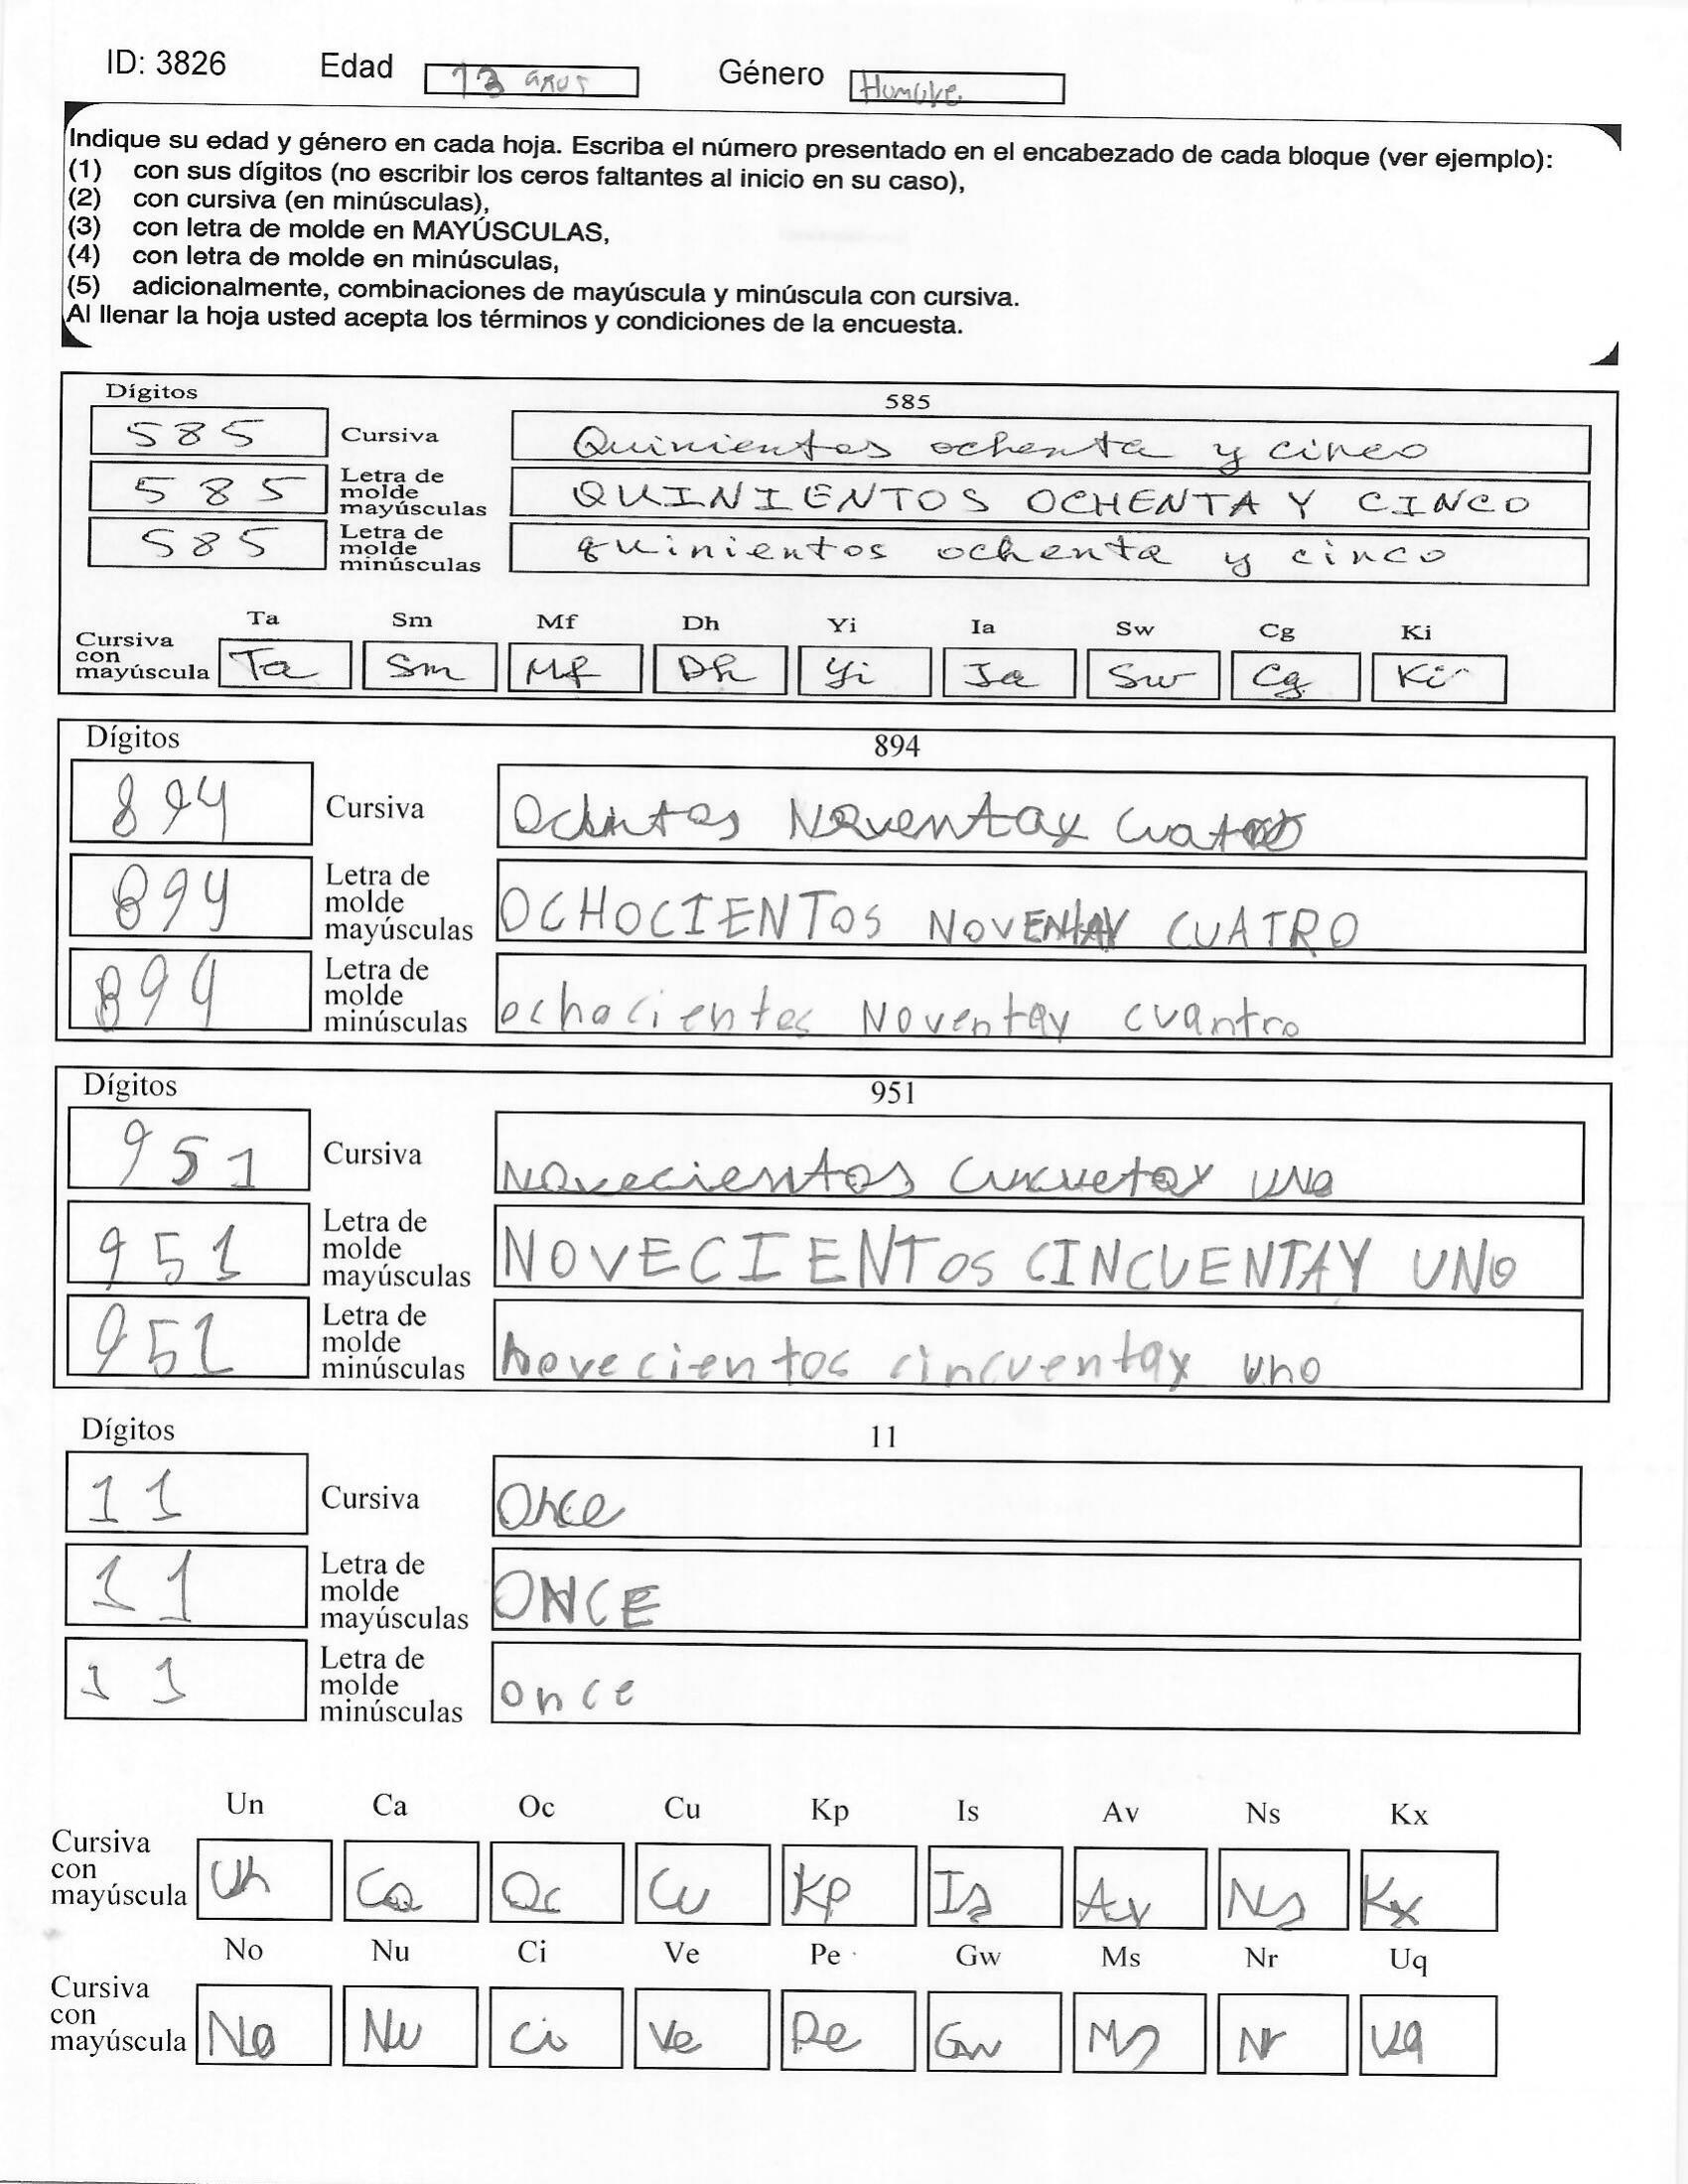 ID: 3826 Edad 13 años Género Hombre
Indique su edad y género en cada hoja. Escriba el número presentado en el encabezado de cada bloque (ver ejemplo):
(1) con sus dígitos (no escribir los ceros faltantes al inicio en su caso),
(2) con cursiva (en minúsculas),
(3) con letra de molde en MAYÚSCULAS,
(4) con letra de molde en minúsculas,
(5) adicionalmente, combinaciones de mayúscula y minúscula con cursiva.
Al llenar la hoja usted acepta los términos y condiciones de la encuesta.
Dígitos 585
585 Cursiva Quinientos ochenta y cinco
585 Letra de molde mayúsculas QUINIENTOS OCHENTA Y CINCO
585 Letra de molde minúsculas quinientos ochenta y cinco
Ta Sm Mf Dh Yi Ia Sw Cg Ki
Cursiva con mayúscula Ta Sm Mf Dh Yi Ia Sw Cg Ki
Dígitos 894
894 Cursiva Ochntos Noventay Cuatro
894 Letra de molde mayúsculas OCHOCIENTOS NOVENTAY CUATRO
894 Letra de molde minúsculas ochocientos Noventay cuantro
Dígitos 951
951 Cursiva Novecientos uno
951 Letra de molde mayúsculas NOVECIENTOS CINCUENTAY UNO
951 Letra de molde minúsculas novecientos cincuentay uno
Dígitos 11
11 Cursiva Once
11 Letra de molde mayúsculas ONCE
11 Letra de molde minúsculas once
Un Ca Oc Cu Kp Is Av Ns Kx
Cursiva con mayúscula Un Ca Oc Cu Kp Is Av Ns Kx
No Nu Ci Ve Pe Gw Ms Nr Uq
Cursiva con mayúscula No Nu Ci Ve Pe Gw Ms Nr Uq